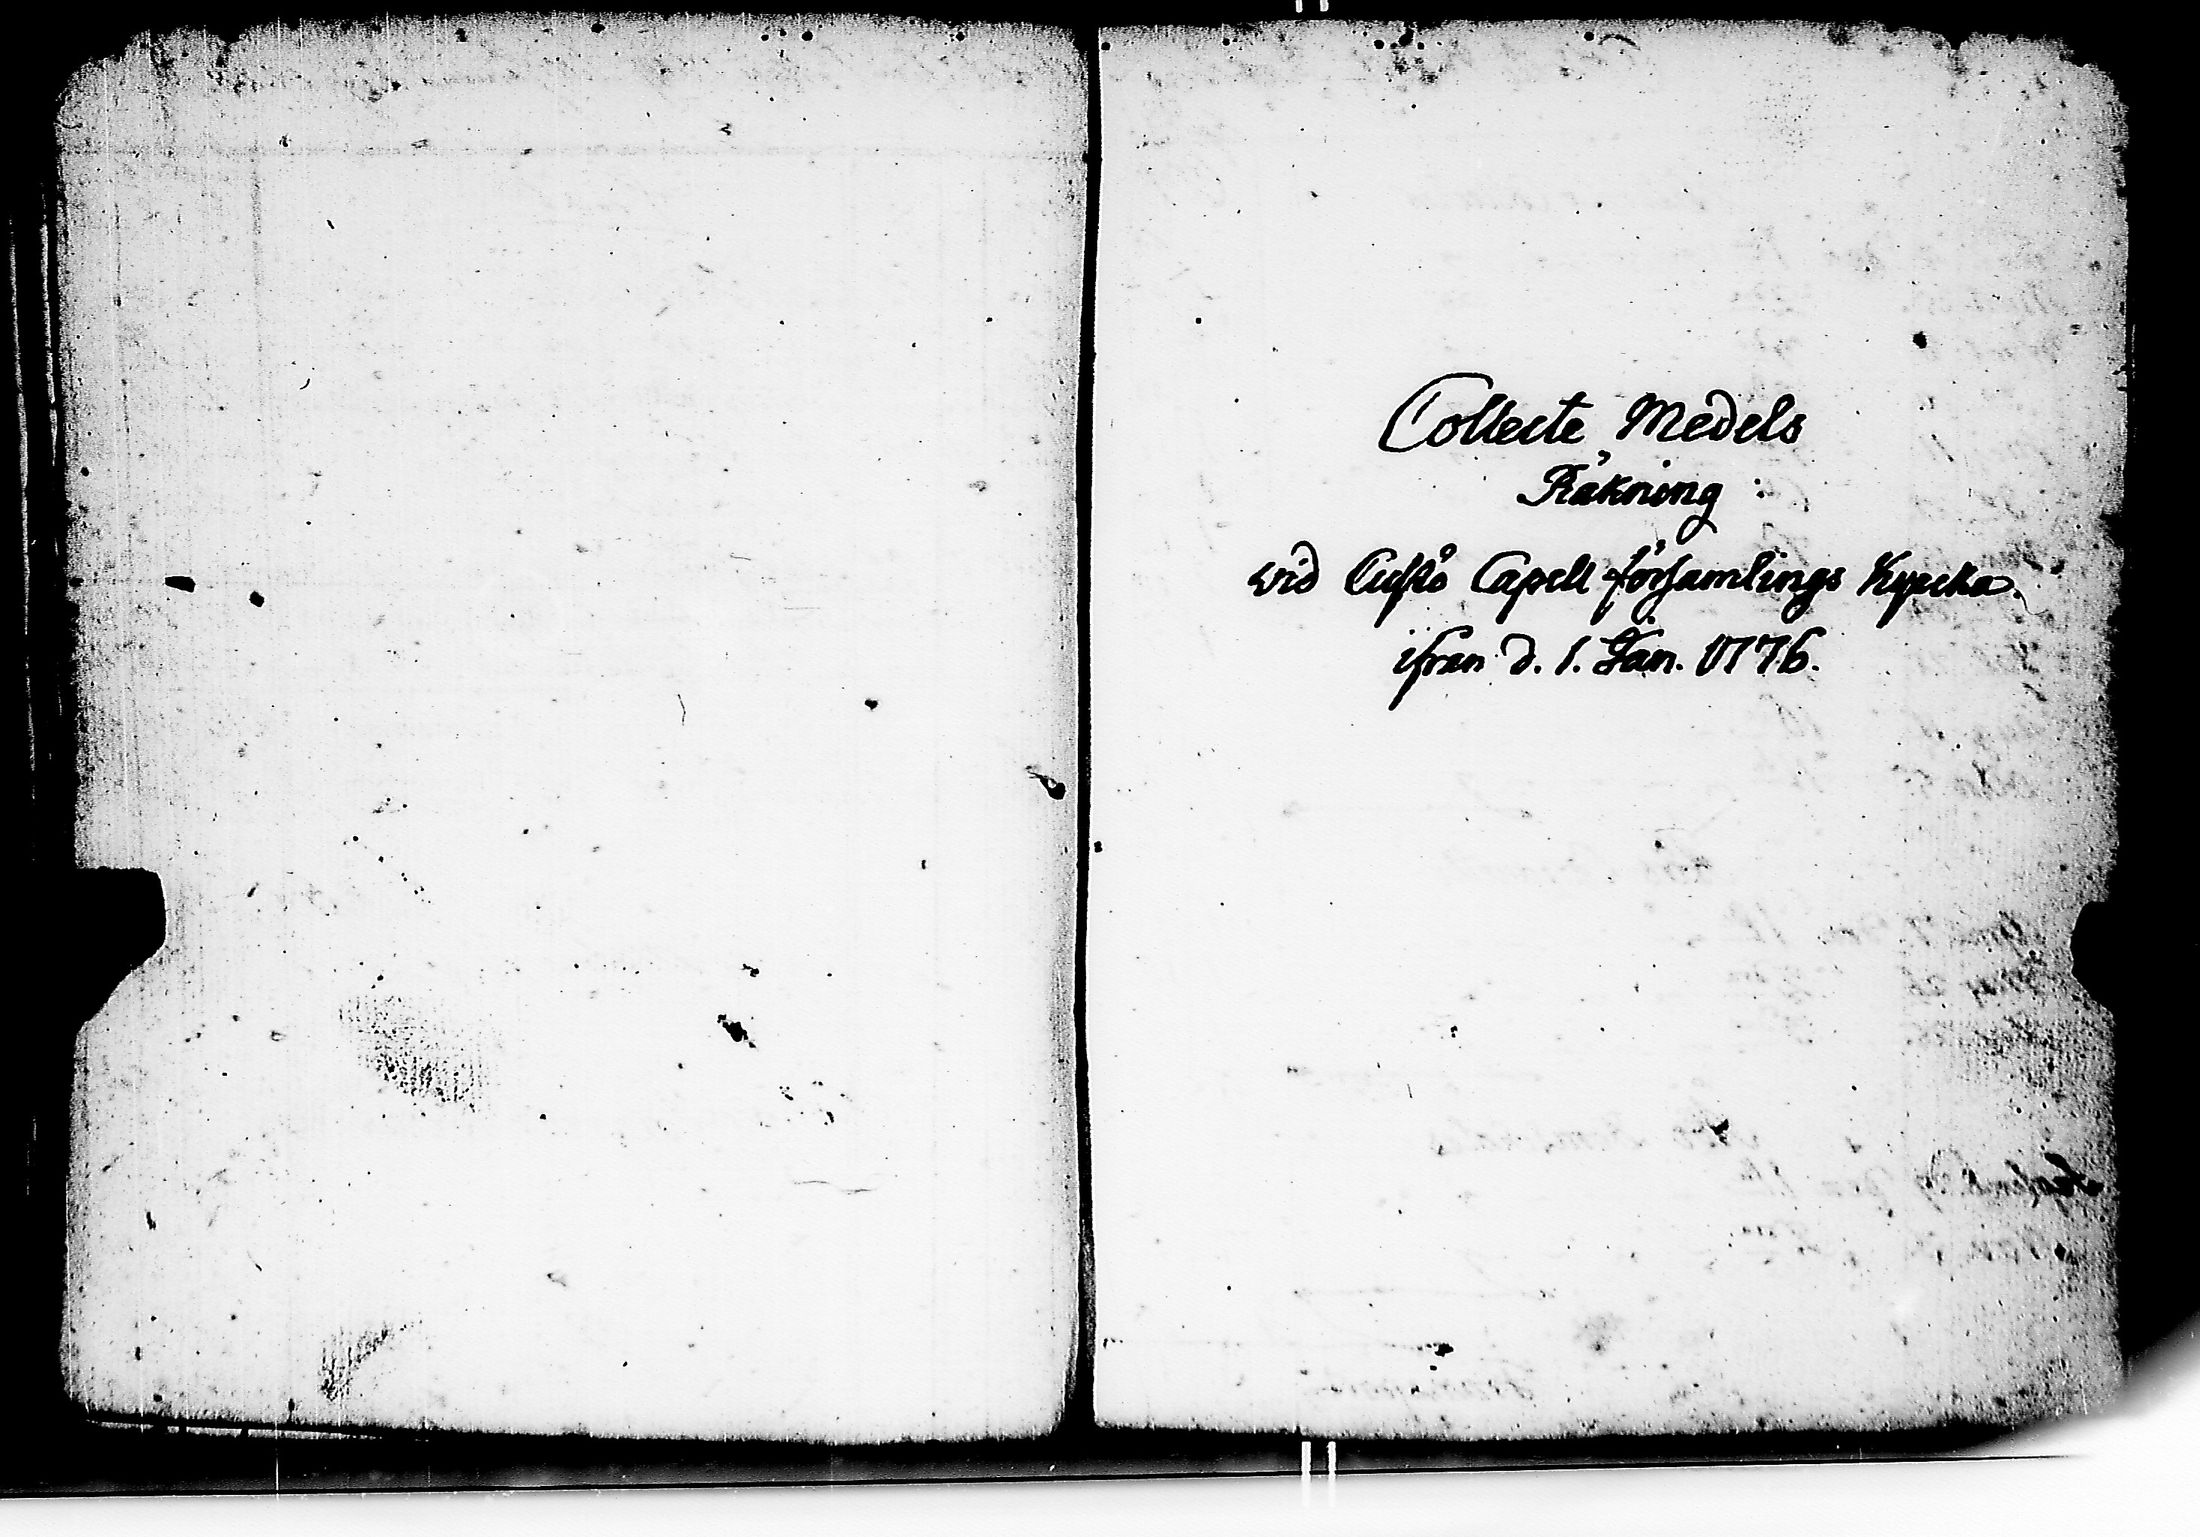 Collecte Medels
Räkning
wid Custö Capell församlings Kyrcka.
ifrån d. 1. Jan. 1776.